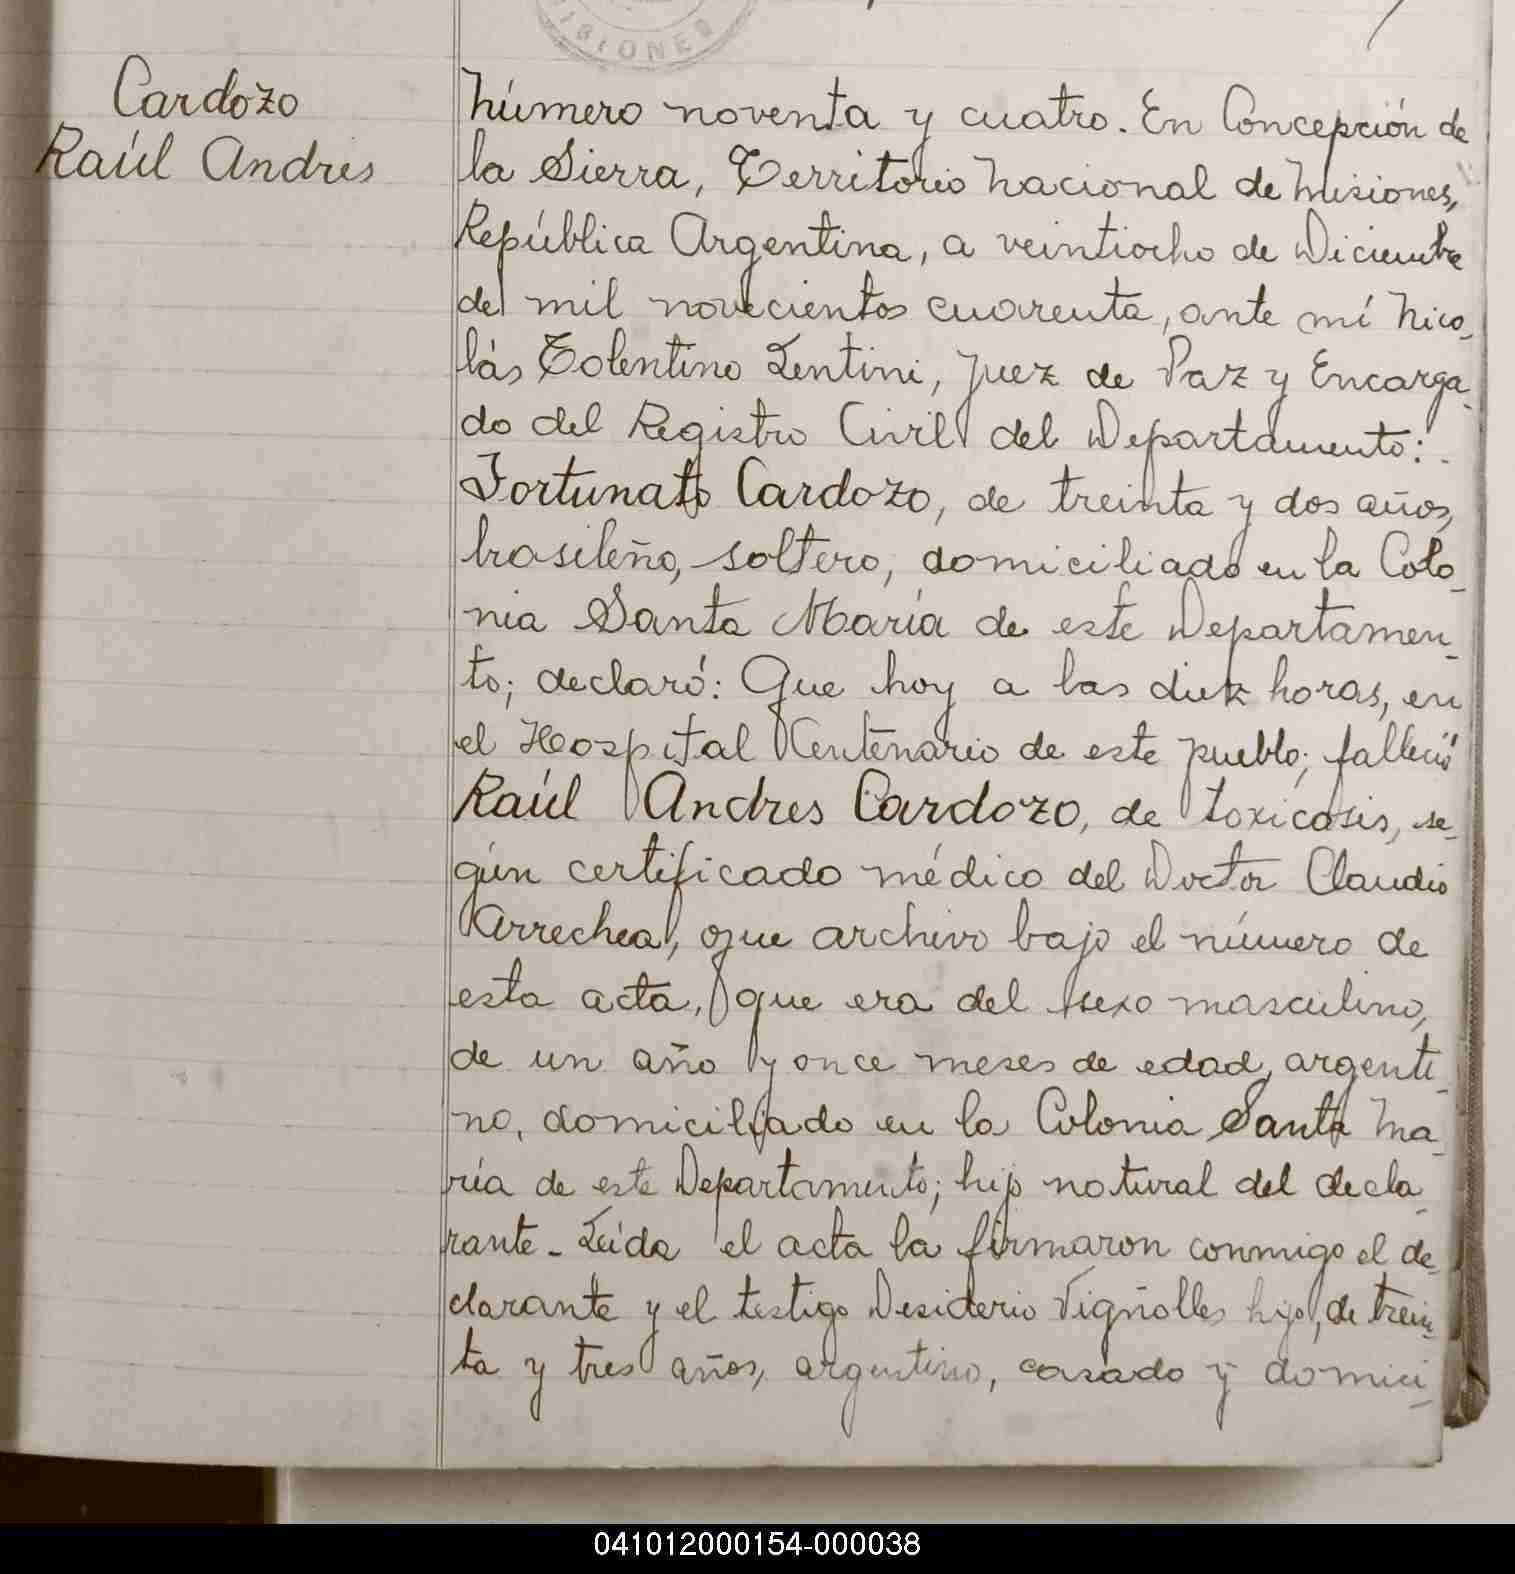 ISIONES
Cardozo
Raúl Andres
Número noventa y cuatro. En Concepción de
la Sierra, Territorio Nacional de Misiones,
República Argentina, a veintiocho de Diciembre
de mil novecientos cuarenta, ante mí Nico-
lás Tolentino Lentini, Juez de Paz y Encarga-
do del Registro Civil del Departamento:
Fortunato Cardozo, de treinta y dos años,
brasileño, soltero, domiciliado en la Colo-
nia Santa María de este Departamen-
to; declaró: Que hoy a las diez horas, en
el Hospital Centenario de este pueblo; falleció
Raúl Andres Cardozo, de toxicosis, se-
gún certificado médico del Doctor Claudio
Arrechea, que archivo bajo el número de
esta acta, que era del sexo masculino,
de un año y once meses de edad, argenti-
no, domiciliado en la Colonia Santa Ma-
ría de este Departamento; hijo natural del decla-
rante - Leída el acta la firmaron conmigo el de-
clarante y el testigo Desiderio Vigñolles hijo, de trein-
ta y tres años, argentino, casado y domici-
041012000154-000038